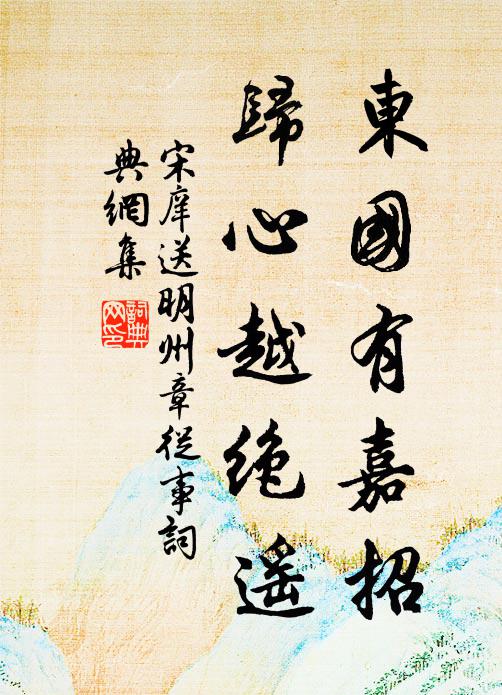 東國有嘉招
歸心越絶遥
宋庠送明州章從事詞
典網集
詞典網印